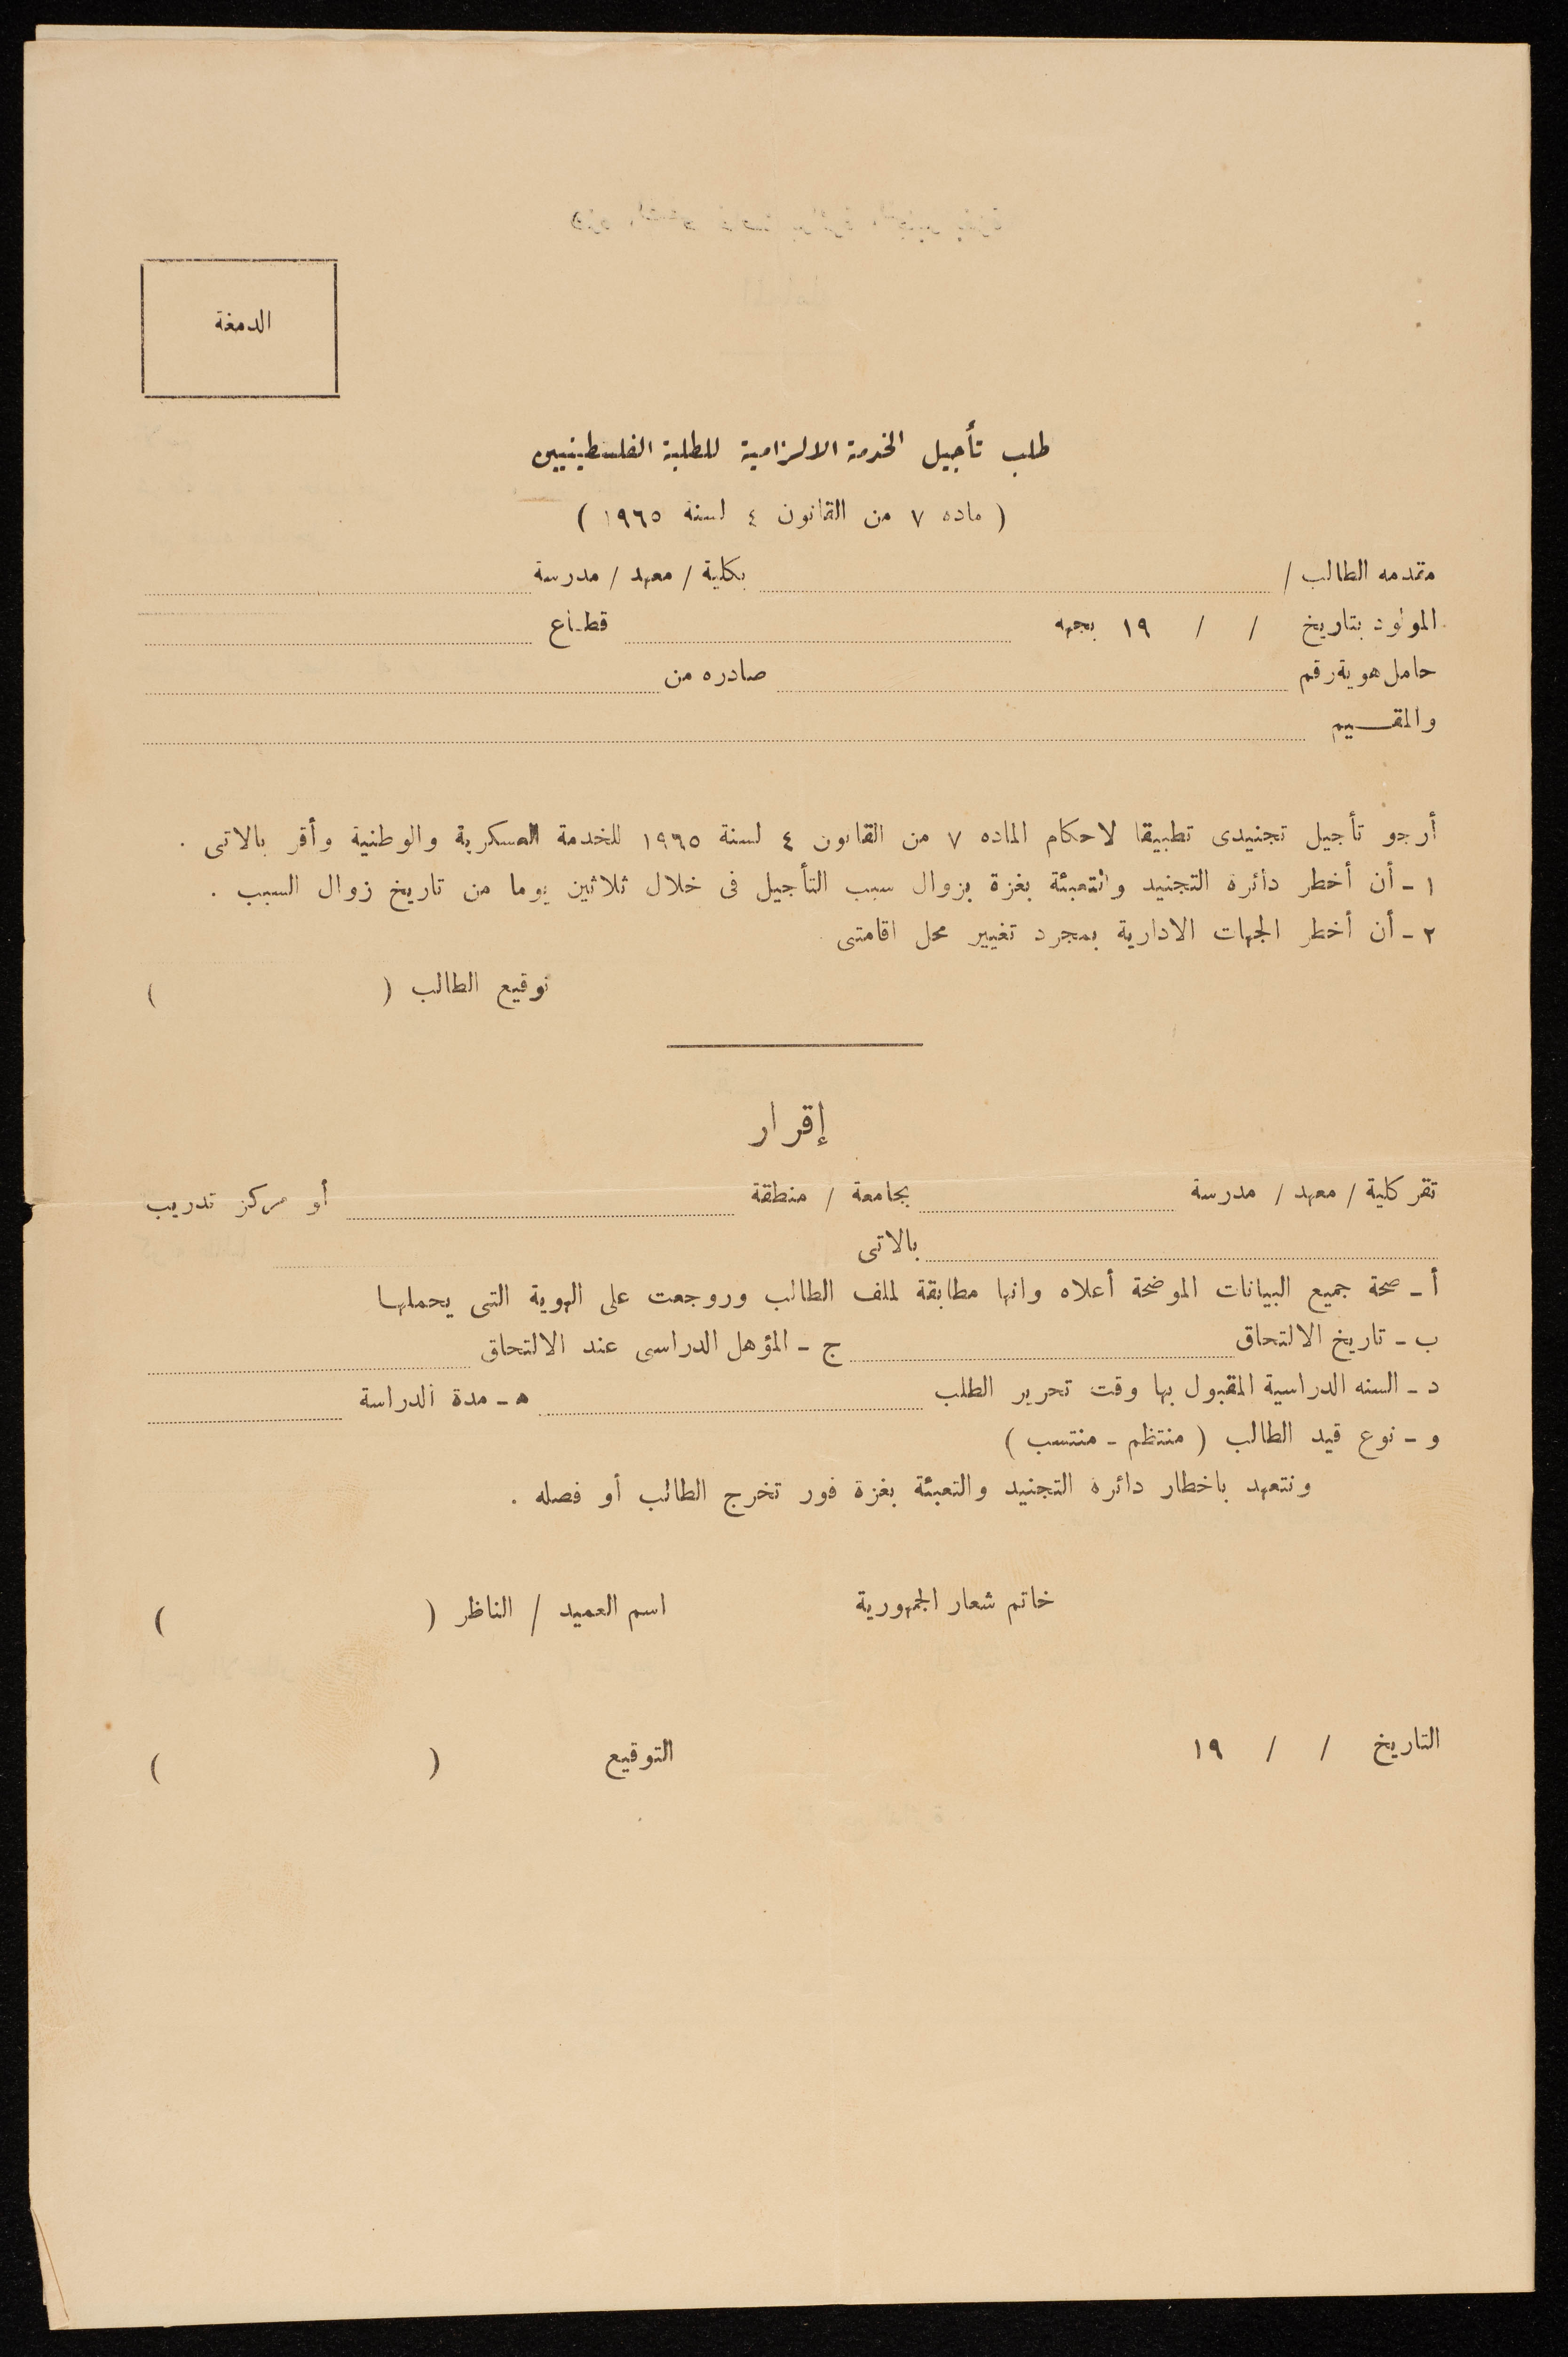 الدمغة
طلب تأجيل الخدمة الالزامية للطلبة الفلسطينيين
( ماده ٧ من القانون ٤ لسنة ١٩٦٥ )
مقدمه الطالب / بكلية / معهد / مدرسة
المولود بتاريخ / / ١٩ بجهه قطاع
حامل هوية رقم صادره من
والمقـــيم
أرجو تأجيل تجنيدى تطبيقا لاحكام الماده ٧ من القانون ٤ لسنة ١٩٦٥ للخدمة العسكرية والوطنية وأقر بالاتى .
١ - أن أخطر دائرة التجنيد والتعبئة بغزة بزوال سبب التأجيل فى خلال ثلاثين يوما من تاريخ زوال السبب .
٢ - أن أخطر الجهات الادارية بمجرد تغيير محل اقامتى
توقيع الطالب ( )
إقرار
تقر كلية / معهد / مدرسة بجامعة / منطقة أو مركز تدريب
بالاتى
أ - صحة جميع البيانات الموضحة أعلاه وانها مطابقة لملف الطالب وروجعت على الهوية التى يحملها
ب - تاريخ الالتحاق ج - المؤهل الدراسى عند الالتحاق
د - السنه الدراسية المقبول بها وقت تحرير الطلب ه - مدة الدراسة
و - نوع قيد الطالب ( منتظم - منتسب )
ونتعهد باخطار دائرة التجنيد والتعبئة بغزة فور تخرج الطالب أو فصله .
خاتم شعار الجمهورية اسم العميد / الناظر ( )
التاريخ / / ١٩ التوقيع ( )